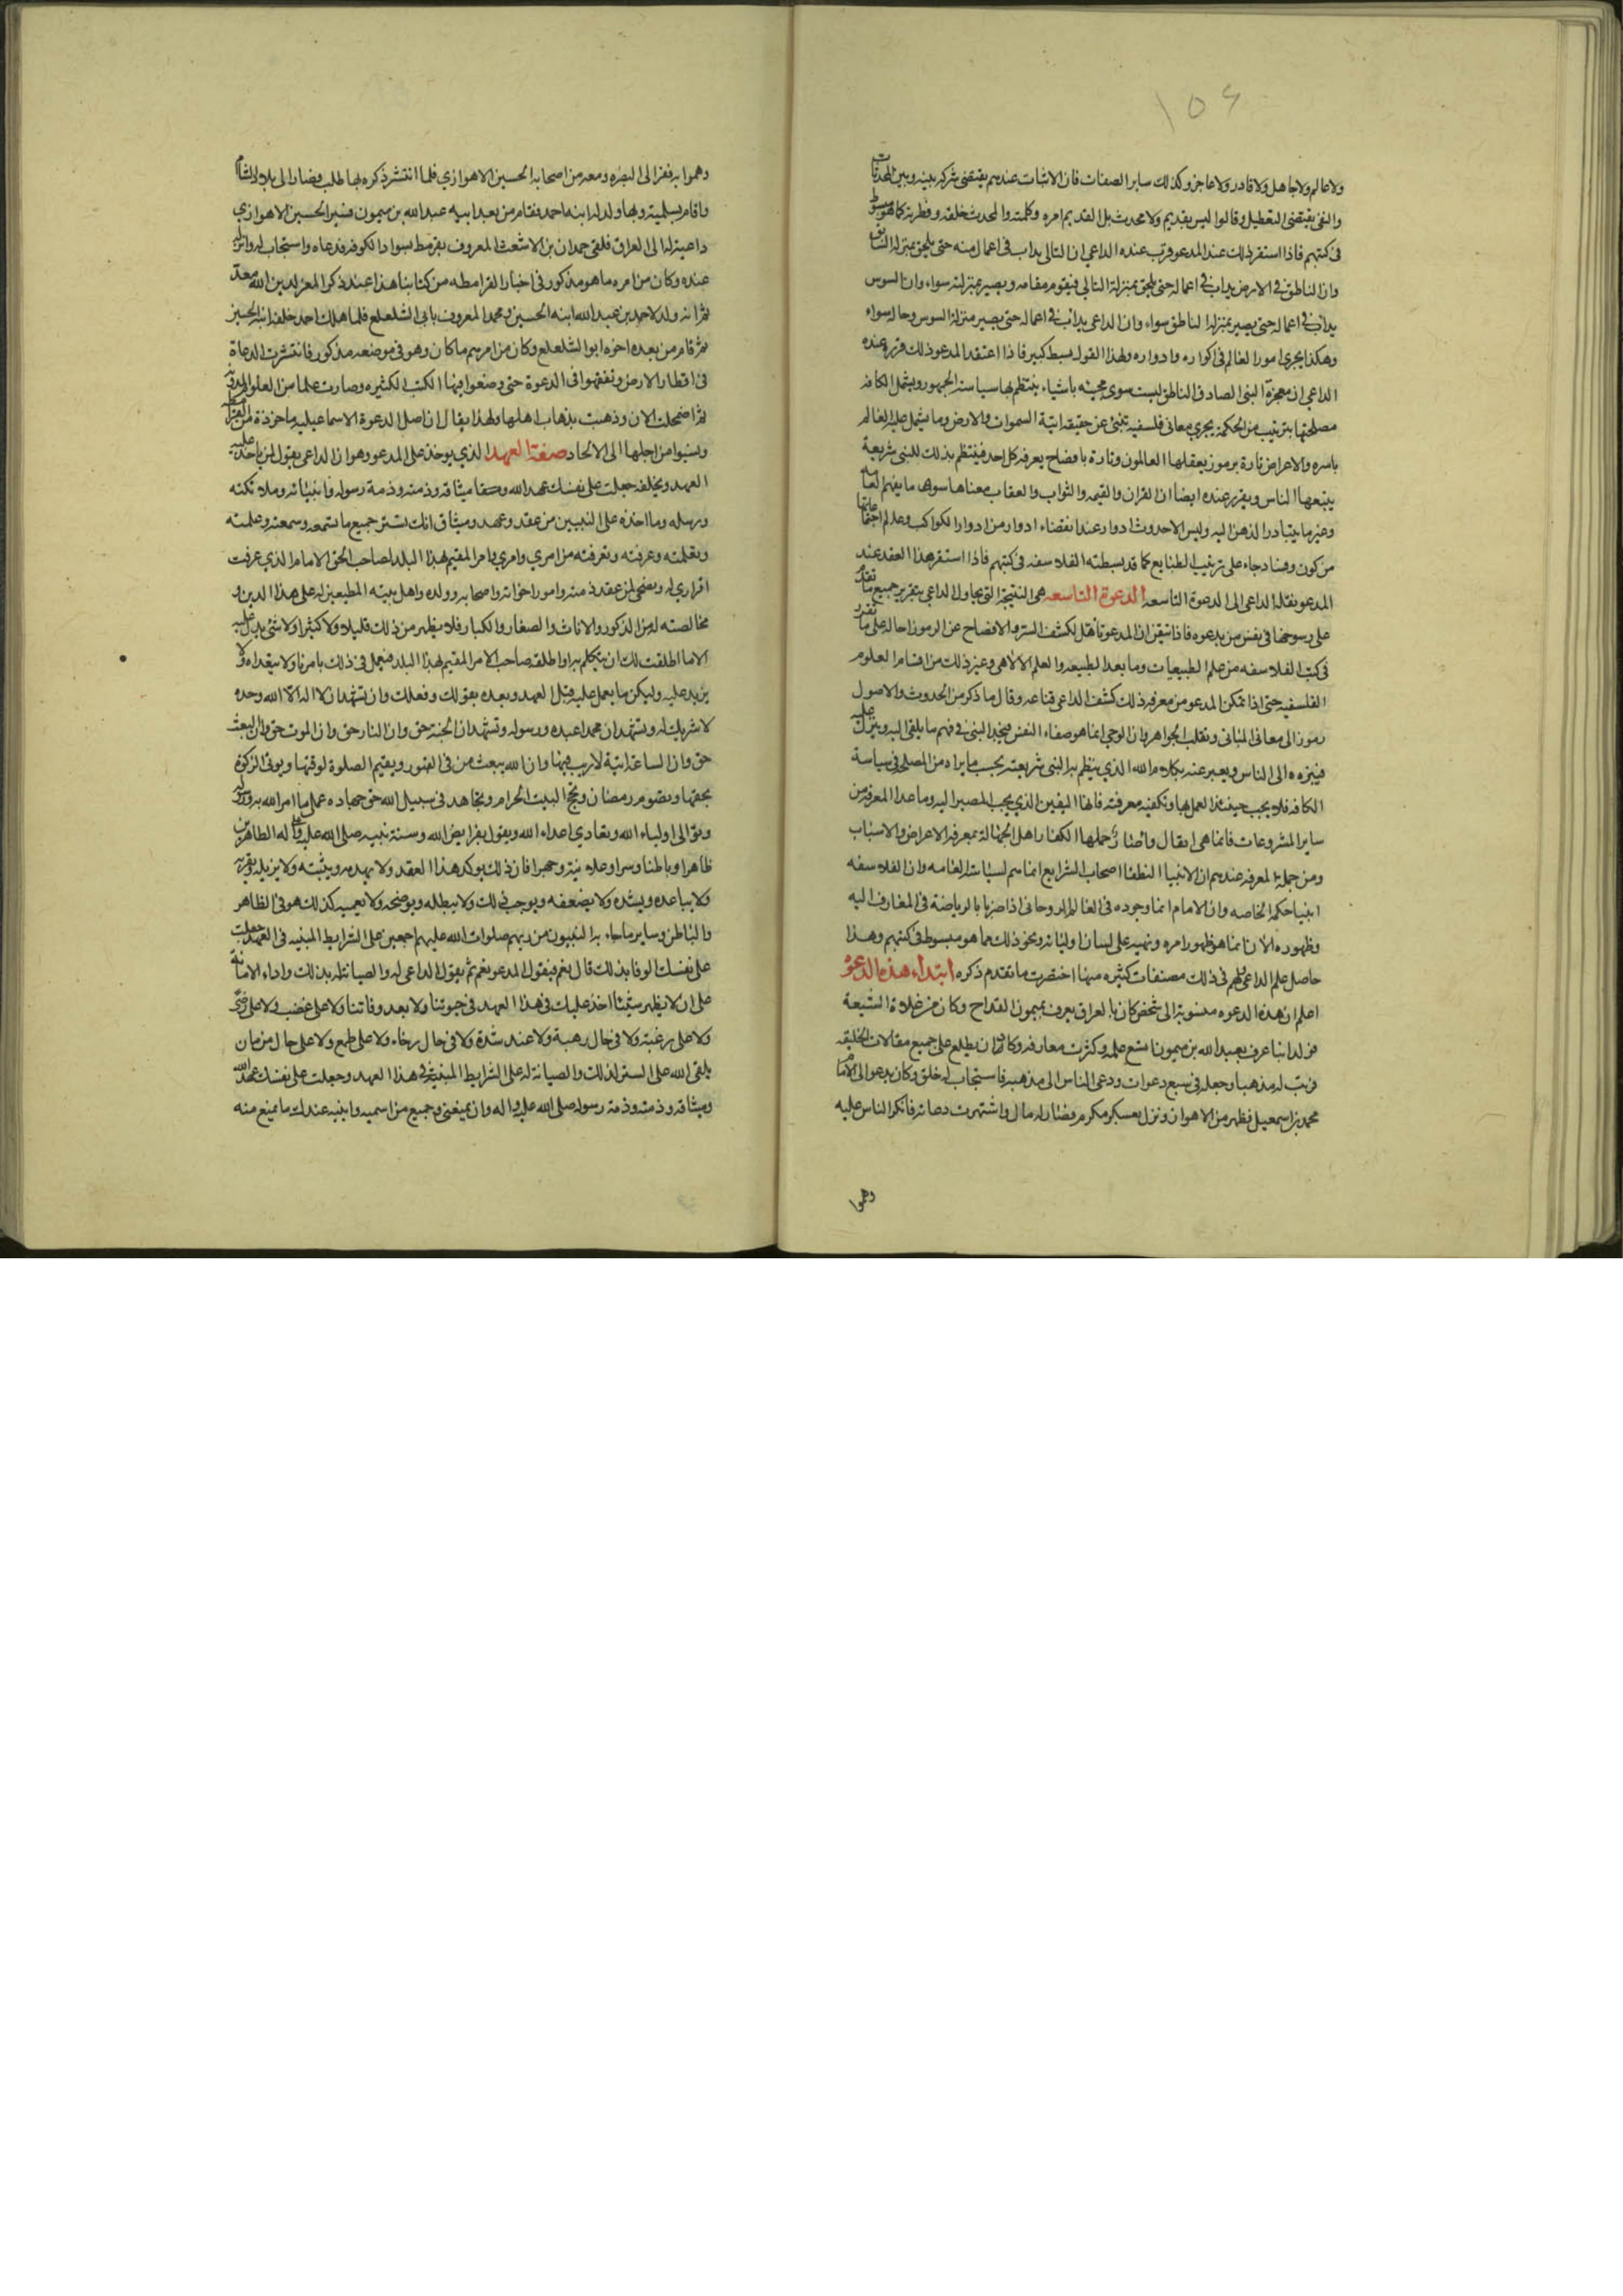 ١٥٤
ولا عالم ولا جاهل ولا قادر ولا عاجز وكذلك ساير الصفات فان الاثبات عندهم يقتضى شركه بينه وبين المحدثات
والنفى يقتضى التعطيل وقالوا ليس بقديم ولا محدث بل القديم امره وكلمته والمحدث خلقه وفطرته كما هو مبسوط
فى كتبهم فاذا استقر ذلك عند المدعو قرب عنده الداعى ان التالى يداب فى اعماله منه حتى يلحق بمنزلة السابق
وان الناطق فى الارض يداب فى اعماله حتى يلحق بمنزلة التالى فيقوم مقامه ويصير بمنزلته سواء وان السوس
يداب فى اعماله حتى يصير بمنزلة الناطق سواء وان الداعى يداب فى اعماله حتى يصير منزلة السوس وحاله سواء
وهكذا يجرى امور العالم فى اكواره وادواره ولهذا القول بسط كبير فاذا اعتقد المدعو ذلك قرر عنده
الداعى ان معجزة النبى الصادق الناطق ليست سوى مجيئه باشياء ينتظم بها سياسة الجمهور ويشمل الكافه
مصلحتها بترتيب من الحكمة يجرى معانى فلسفيه تنبئ عن حقيقة انية السموات والارض وما يشمل عليه العالم
باسره والاعراض تارة برموز يعقلها العالمون وتارة بافصاح يعرفه كل احد فينتظم بذلك للنبى شريعة
يتبعها الناس ويقرر عنده ايضا ان القران والقيمه والثواب والعقاب معناها سوى ما يفهم العامه
وغير ما يتبادر الذهن اليه وليس الا حدوث ادوار عند انقضاء ادوار من ادوار الكواكب وعالم اجتماعاتها
من كون وفساد جاء على ترتيب الطبايع كما قد بسطته الفلاسفه فى كتبهم فاذا استقر هذا العقد عند
المدعو نقله الداعى الى الدعوة التاسعه الدعوة التاسعه هى النتيجة التى يحاول الداعى بتقرير جميع ما تقدم
على رسوخها فى نفس من يدعوه فاذا تيقن ان المدعو تاهل لكشف الستر والافصاح عن الرموز احاله على ما تقرر
فى كتب الفلاسفه من علم الطبيعيات وما بعد الطبيعه والعلم الالاهى وغير ذلك من اقسام العلوم
الفلسفيه حتى اذا تمكن المدعو من معرفة ذلك كشف الداعى قناعه وقال ما ذكر من الحدوث والاصول
رموز الى معانى المبانى وتقلب الجواهر وان الوحى انما هو صفاء النفس فيجد النبى فى فهم ما يلقى اليه ويتنزل عليه
فيبرزه الى الناس ويعبر عنه بكلام الله الذى ينظم به النبى شريعته بحسب ما يراه من المصلحه فى سياسة
الكافه فلا يجب حينئذ العمل بها وتكفيه معرفته فانها اليقين الذى يجب المصير اليه وما عدا المعرفه من
ساير المشروعات فانما هى اثقال واصار حملها الكفار اهل الجهالة بمعرفة الاعراض والاسباب
ومن جملة المعرفه عندهم ان الانبيا النطقا اصحاب الشرايع انما هم لسياسة العامه وان الفلاسفه
انبيا حكمة الخاصه وان الامام انما وجوده فى العالم الروحانى اذا صرنا بالرياضة فى المعارف اليه
وظهوره الان انما هو ظهور امره ونهيه على لسان اوليائه ونحو ذلك مما هو مبسوط فى كتبهم وهذا
حاصل علم الداعى ولهم فى ذلك مصنفات كثيره منها اختصرت ما تقدم ذكره ابتداء هذه الدعوة
اعلم ان هذه الدعوه منسوبة الى شخص كان بالعراق يعرف بميمون القداح وكان من غلاة الشيعة
فولد ابنا عرف بعبد الله بن ميمون اتسع علمه وكثرت معارفه وكاد ان يطلع على جميع مقالات الخليقه
فرتب له مذهبا وجعله فى سبع دعوات ودعى الناس الى مذهبه فاستجاب له خلق وكان يدعو الى الامام
محمد بن اسمعيل فظهر من الاهواز ونزل بعسكر مكرم فصار له مال واشتهرت دعاته فانكر الناس عليه
وهموا
وهموا به ففر الى البصره ومعه من اصحابه الحسين الاهوازي فلما انتشر ذكره بها طلب فصار الى بلاد الشام
واقام بسلمية وبها ولد له ابنه احمد فقام من بعد ابيه عبد الله بن ميمون فسير الحسين الاهوازي
داعية له الى العراق فلقى حمدان بن الاشعث المعروف بقرمط بسواد الكوفه فدعاه واستجاب له وانزله
عنده وكان من امره ما هو مذكور فى اخبار القرامطه من كتابنا هذا عند ذكر المعز لدين الله معد
ثم انه ولد لاحمد بن عبد الله ابنه الحسين ومحمد المعروف بابى الشلعلع فلما هلك احمد خلفه ابنه الحسين
ثم قام من بعده اخوه ابو الشلعلع وكان من امرهم ما كان وهو فى موضعه مذكور فانتشرت الدعاة
فى اقطار الارض وتفقهوا فى الدعوة حتى وضعوا فيها الكتب الكثيره وصارت علما من العلوم المدونة
ثم اضمحلت الان وذهبت بذهاب اهلها ولهذا يقال ان اصل الدعوة الاسماعيليه ماخوذة من القرامطه
ونسبوا من اجلها الى الالحاد صفة العهد الذي يوخذ على المدعو وهو ان الداعى يقول لمن ياخذ عليه
العهد ويحلفه جعلت على نفسك عهد الله وميثاقه وذمته وذمة رسوله وانبيائه وملائكته
ورسله وما اخذه على النبيين من عقد وعهد وميثاق انك تستر جميع ما تسمعه وسمعته وعلمته
وتعلمته وعرفته وتعرفته من امري وامر المقيم بهذا البلد لصاحب الحق الامام الذي عرفت
اقراري له ونصحى لمن عقد ذمته وامور اخوانه واصحابه وولده واهل بيته المطيعين له على هذا الدين و
مخالصته له من الذكور والاناث والصغار والكبار فلا يظهر من ذلك قليلا ولا كثيرا ولا شئ يدل عليه
الا ما اطلقت لك ان تتكلم به او اطلقه صاحب الامر المقيم بهذا البلد فتعمل فى ذلك بامرنا ولا يتعداه ولا
يزيد عليه وليكن ما يعمل عليه قبل العهد وبعده بقولك وفعلك وان تشهد ان لا اله الا الله وحده
لا شريك له وتشهد ان محمدا عبده ورسوله وتشهد ان الجنة حق وان النار حق وان الموت حق وان البعث
حق وان الساعة اتية لا ريب فيها وان الله يبعث من فى القبور ويقيم الصلوة لوقتها ويوتى الزكوة
بحقها وتصوم رمضان وتحج البيت الحرام وتجاهد فى سبيل الله حق جهاده على ما امر الله به ورسوله
وتوالى اولياء الله وتعادي اعداء الله ويقول بفرايض الله وسنة نبيه صلى الله عليه وعلى اله الطاهرين
ظاهرا وباطنا وسرا وعلانية وجهرا فان ذلك يوكد هذا العقد ولا يهدمه ويثبته ولا يزيله ويقربه
ولا يباعده ويشده ولا يضعفه ويوجب ذلك ولا يبطله ويوضحه ولا يعميه كذلك هو فى الظاهر
والباطن وساير ما جاء به النبيون من ربهم صلوات الله عليهم اجمعين على الشرايط المبنيه فى العهد جعلت
على نفسك الوفا بذلك قال نعم فيقول المدعو نعم ثم يقول الداعى له والصيانة له بذلك واداء الامانة
على ان لا يظهر شيئا اخذ عليك فى هذا العهد فى حيوتنا ولا بعد وفاتنا ولا على غضب ولا على رضى
ولا على رغبة ولا فى حال رهبة ولا عند شدة ولا فى حال رخاء ولا على طمع ولا على حال حرمان
يلقى الله على الستر لذلك والصيانة له على الشرايط المبينة فى هذا العهد وجعلت على نفسك عهد الله
وميثاقه وذمته وذمة رسوله صلى الله عليه واله وان يمنعنى وجميع من اسميه واثبته عندك ما يمنع منه